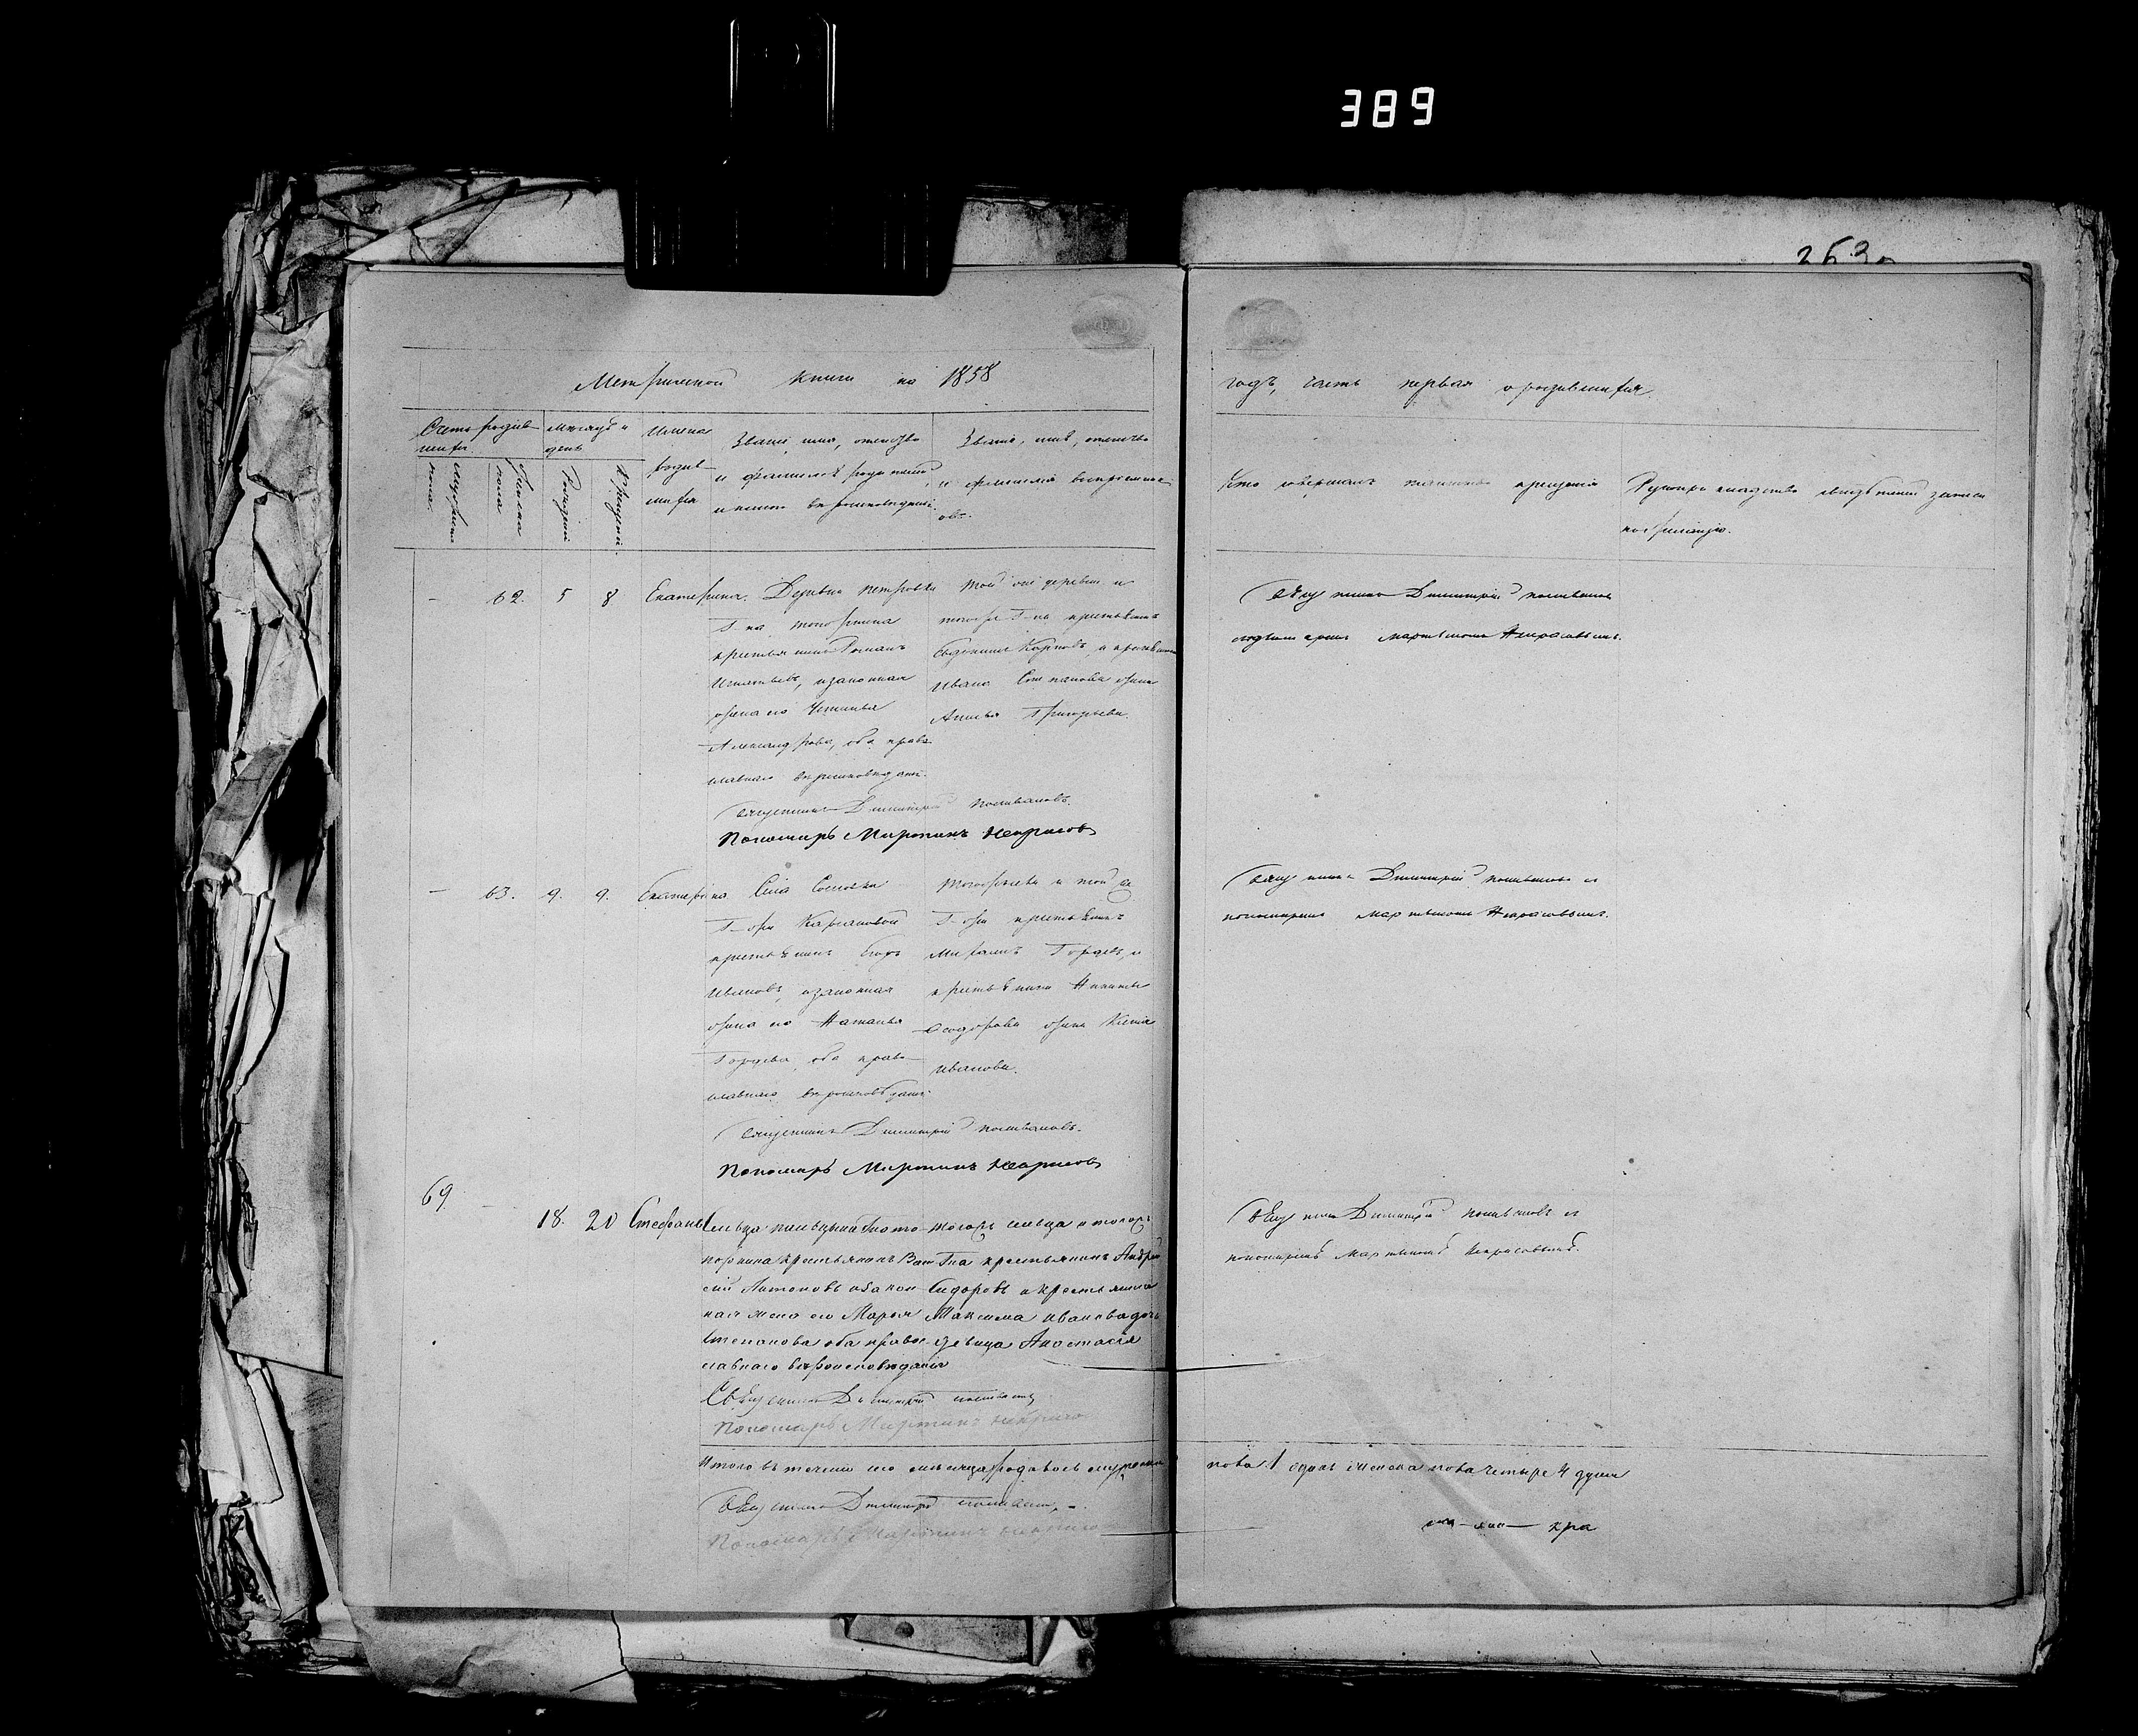 389
263
Метрической книги на 1858
годъ, часть первая о родившихся.
Счетъ родив-
шихся.
Мѣсяцъ и
день
Имена
родив-
шихся
Званіе, имя, отечество
и фамилія родителей,
и какого вѣроисповѣданія.
Званіе, имя, отечество
и фамилія воспріемни-
ковъ.
Кто совершалъ таинство крещенія
Рукоприкладство свидѣтелей записи
по желанію.
Мужеска
пола.
Женска
пола
Рожденія
Крещенія.
- 62. 5 8 Екатерина.
Деревни Петровки
Г-на
крестьянинъ Романъ
Игнатьевъ, и законная
жена его Устинья
Александрова, оба право
славнаго вѣроисповѣданія.
Священникъ Димитрій Поливановъ.
Пономарь Мартинъ Некрасовъ
Той же деревни и
тогоже Г-на крестьянинъ
Евдокимъ Карповъ, и крестьянина
Ивана Степанова жена
Аксинья Григорьева.
Священникъ Димитрій Поливановъ
съ пономаремъ Мартиномъ Некрасовымъ.
- 63. 9. 9. Екатерина
Села Сосновки
Г-жи
крестьянинъ Егоръ
Ивановъ, и законная
жена его Наталья
Гордѣева, оба право-
славнаго вѣроисповѣданія.
Священникъ Димитрій Поливановъ.
Пономарь Мартинъ Некрасовъ
Тогоже села и той же
Г-жи крестьянинъ
Гордѣевъ, и
крестьянина Никиты
Ѳеодорова жена
Иванова.
Священникъ Димитрій Поливановъ съ
пономаремъ Мартиномъ Некрасовымъ.
69. - 18. 20 Стефанъ
Сельца
крестьянинъ Васи-
лій Антоновъ и закон-
ная жена его Марья
Степанова оба право-
славнаго вѣроисповѣданія
Священникъ Димитрій Поливановъ
Пономарь Мартинъ Некрасовъ
Тогожъ сельца и тогожъ
Г-на крестьянинъ Андрей
Сидоровъ и крестьянина
Максима Иванова дочь
девица Анастасія
Священникъ Димитрій Поливановъ съ
пономаремъ Мартиномъ Некрасовымъ.
Итого въ теченіи сего мѣсяца родилось мужеска
пола 1 одинъ женска пола четыре 4 души
Священникъ Димитрій Поливановъ
Пономарь Мартинъ Некрасовъ